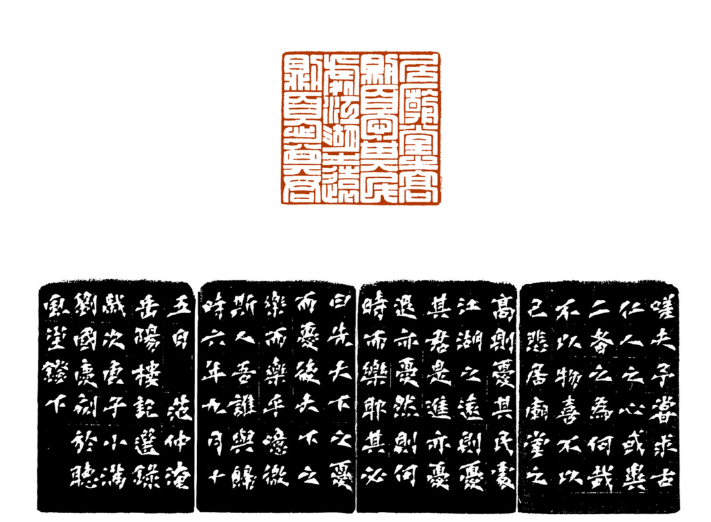 居廟堂之高
則憂其民
處江湖之遠
則憂其君
嗟夫予嘗求古
仁人之心或異
二者之為何哉
不以物喜不以
己悲居廟堂之
高則憂其民處
江湖之遠則憂
其君是進亦憂
退亦憂然則何
時而樂耶其必
曰先天下之憂
而憂後天下之
樂而樂乎噫微
斯人吾誰與歸
時六年九月十
五日 范仲淹
岳陽樓記選錄
歲次庚子小滿
劉國慶刻於聽
風堂燈下